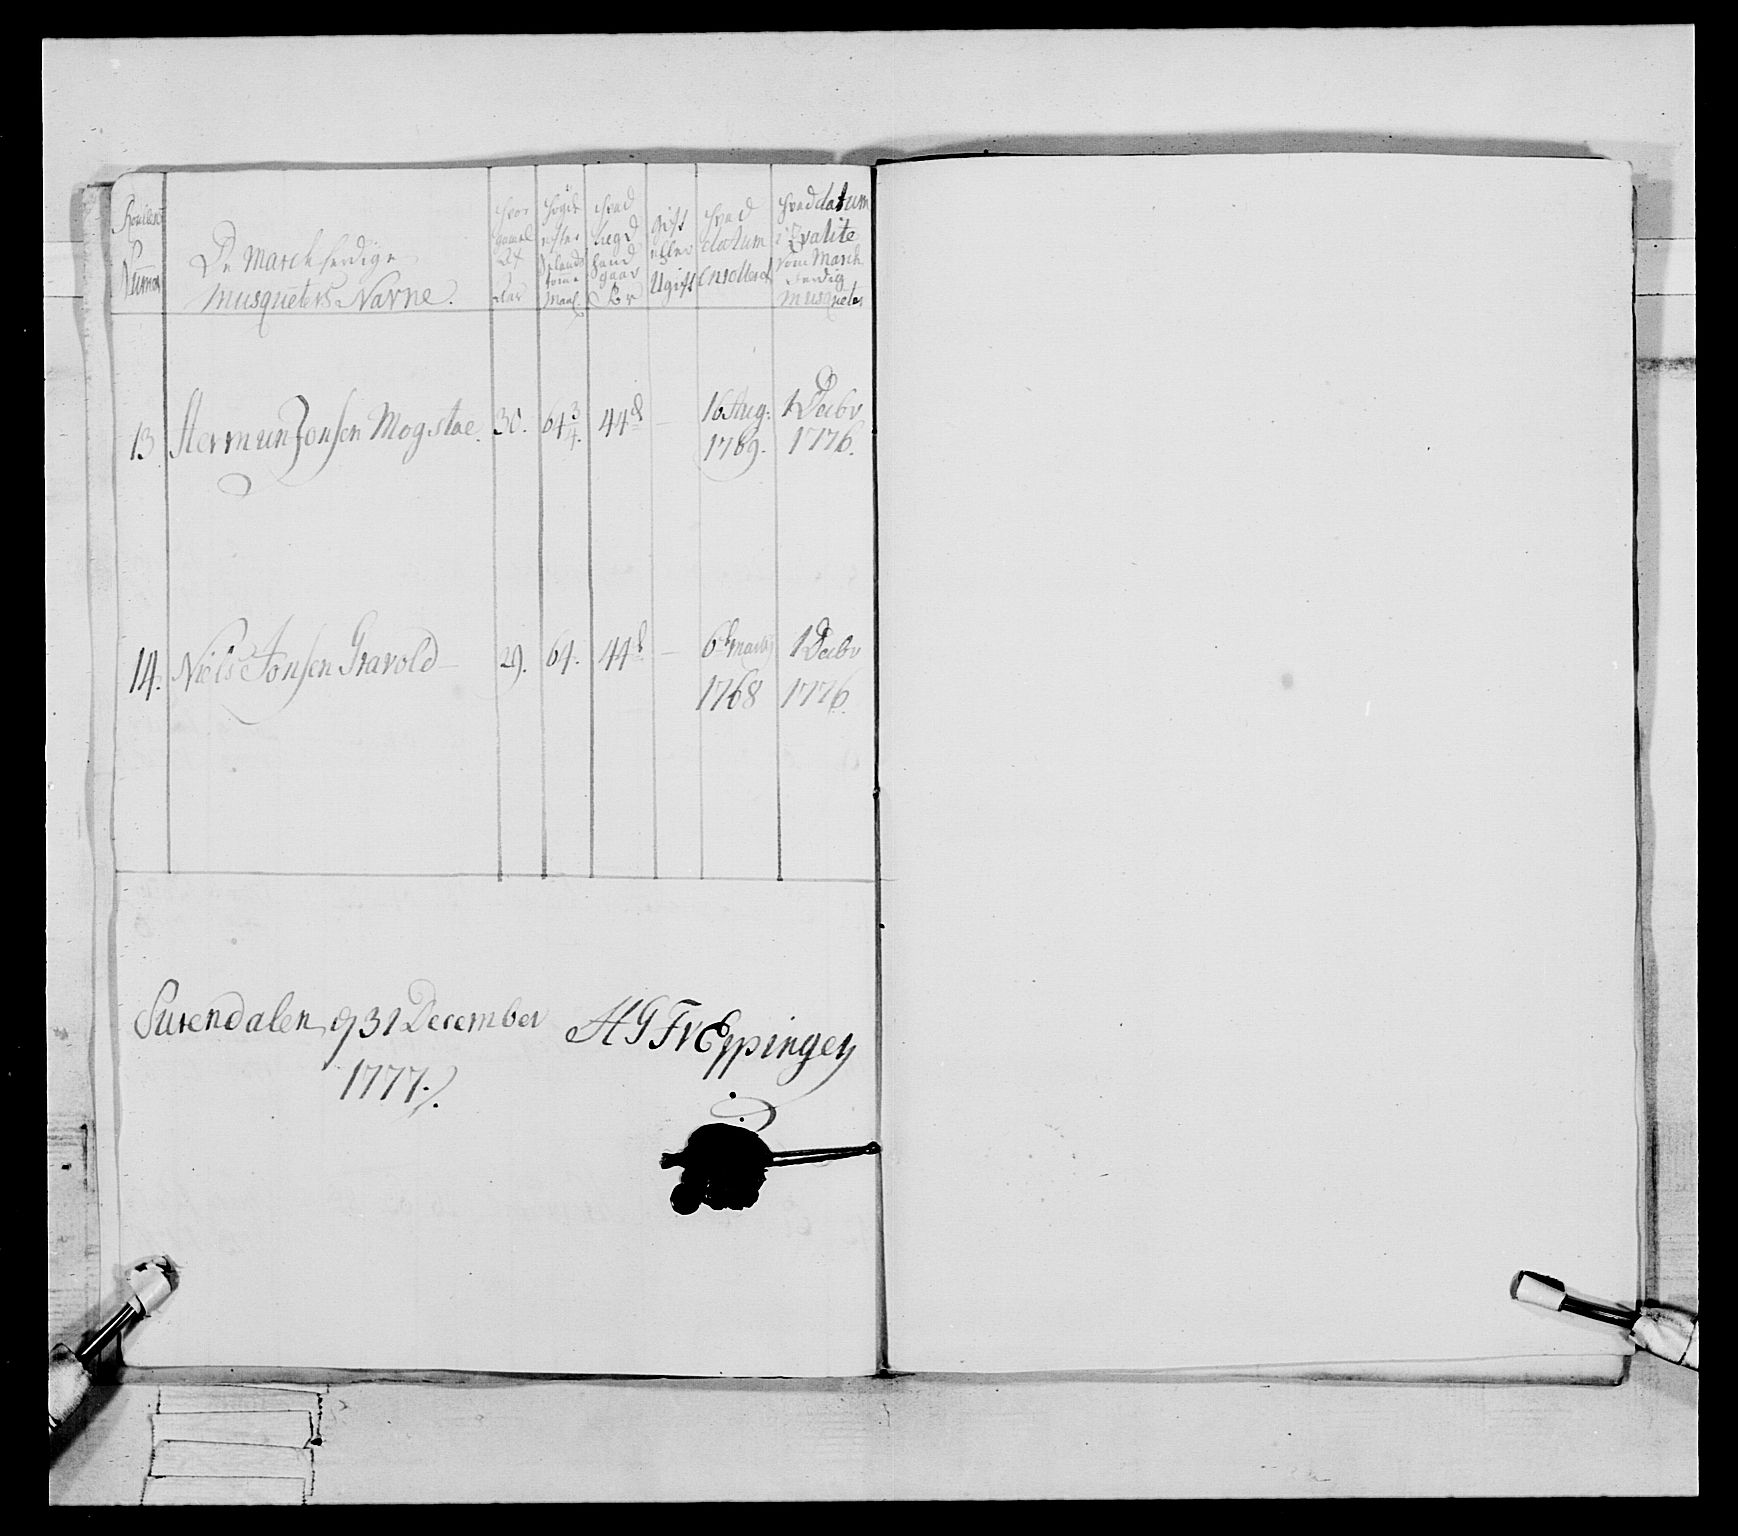 Roullens
Numer
De Marchferdige
Musqueters Navne.
hvor
gamel
Aar
høyde
efter
Maal.
hvad
Lægd
hand
gaar
for
Gift
eller
Ugift
hvad
datum
Enrollered
hvad datum
Qvalite
som March
ferdig
Musqueter
13. Hermun Jonsen Mogstae. 30. 64 3/4. 44d — 16 Aug: 1769. 1 Decbr 1776.
14. Niels Jonsen Gravold 29. 64. 44d — 6d Marty 1768 1 Decbr 1776.
Surendalen, d 31 December
1777.
HGFv Eppingen